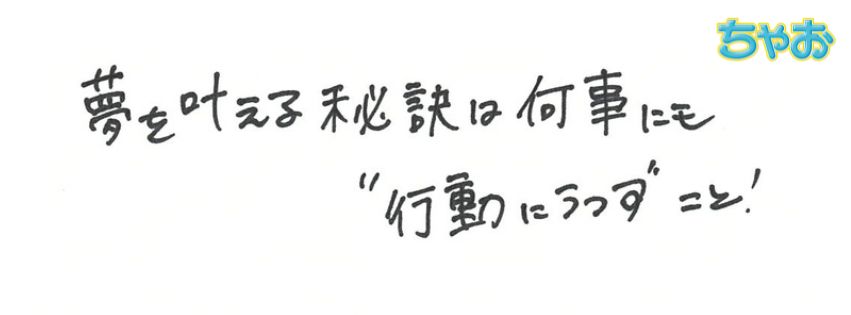 ちゃお
夢を叶える秘訣は何事にも
"行動にうつす"こと!